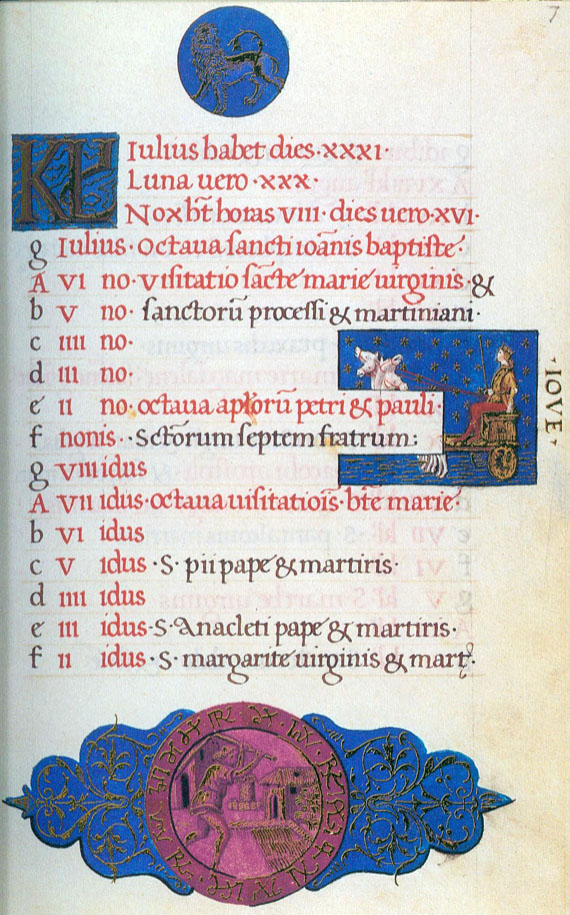 7
KL Iulius habet dies·xxxi·
Luna uero·xxx·
Nox ht̄ horas VIII· dies uero·xvi·
g Iulius·Octaua sancti ioānis baptiste·
A VI no·Visitatio sācte marie uirginis·&
b V no· sanctorū processi & martiniani·
c IIII no·
d III no·
·IOVE·
e II no·octaua aptorū petri & pauli·
f nonis··Sctōrum septem fratrum:
g VIII idus
A VII idus·octaua uisitatiōis·bt̄e marie·
b VI idus
c V idus·S·pii pape & martiris·
d IIII idus
e III idus·S·Anacleti pape & martiris·
f II idus·S·margarite uirginis & mart·